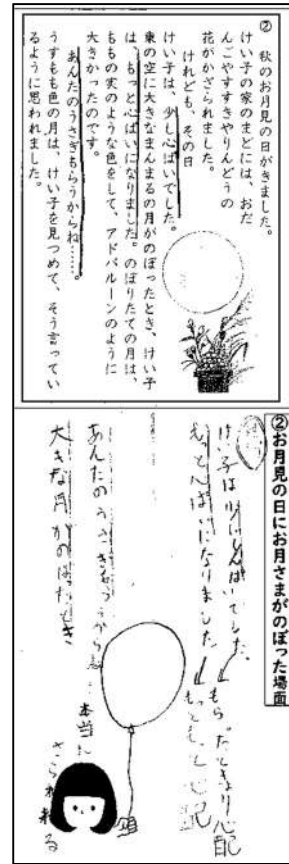 ② 秋のお月見の日がきました。
けい子の家のまどには、おだ
んごやすすきやりんどうの
花がかざられました。
けれども、その日
けい子は、少し心ぱいでした。
東の空に大きなまんまるの月がのぼったとき、けい子
は、もっと心ぱいになりました。のぼりたての月は、
ももの実のような色をして、アドバルーンのように
大きかったのです。
あんたのうさぎもらうからね……。
うすもも色の月は、けい子を見つめて、そう言ってい
るように思われました。
②お月見の日にお月さまがのぼった場面
けい子は少し心ぱいでした。
もっと心ぱいになりました
もっともっと心配
あんたのうさぎもらうからね…本当に
大きな月がのぼったとき